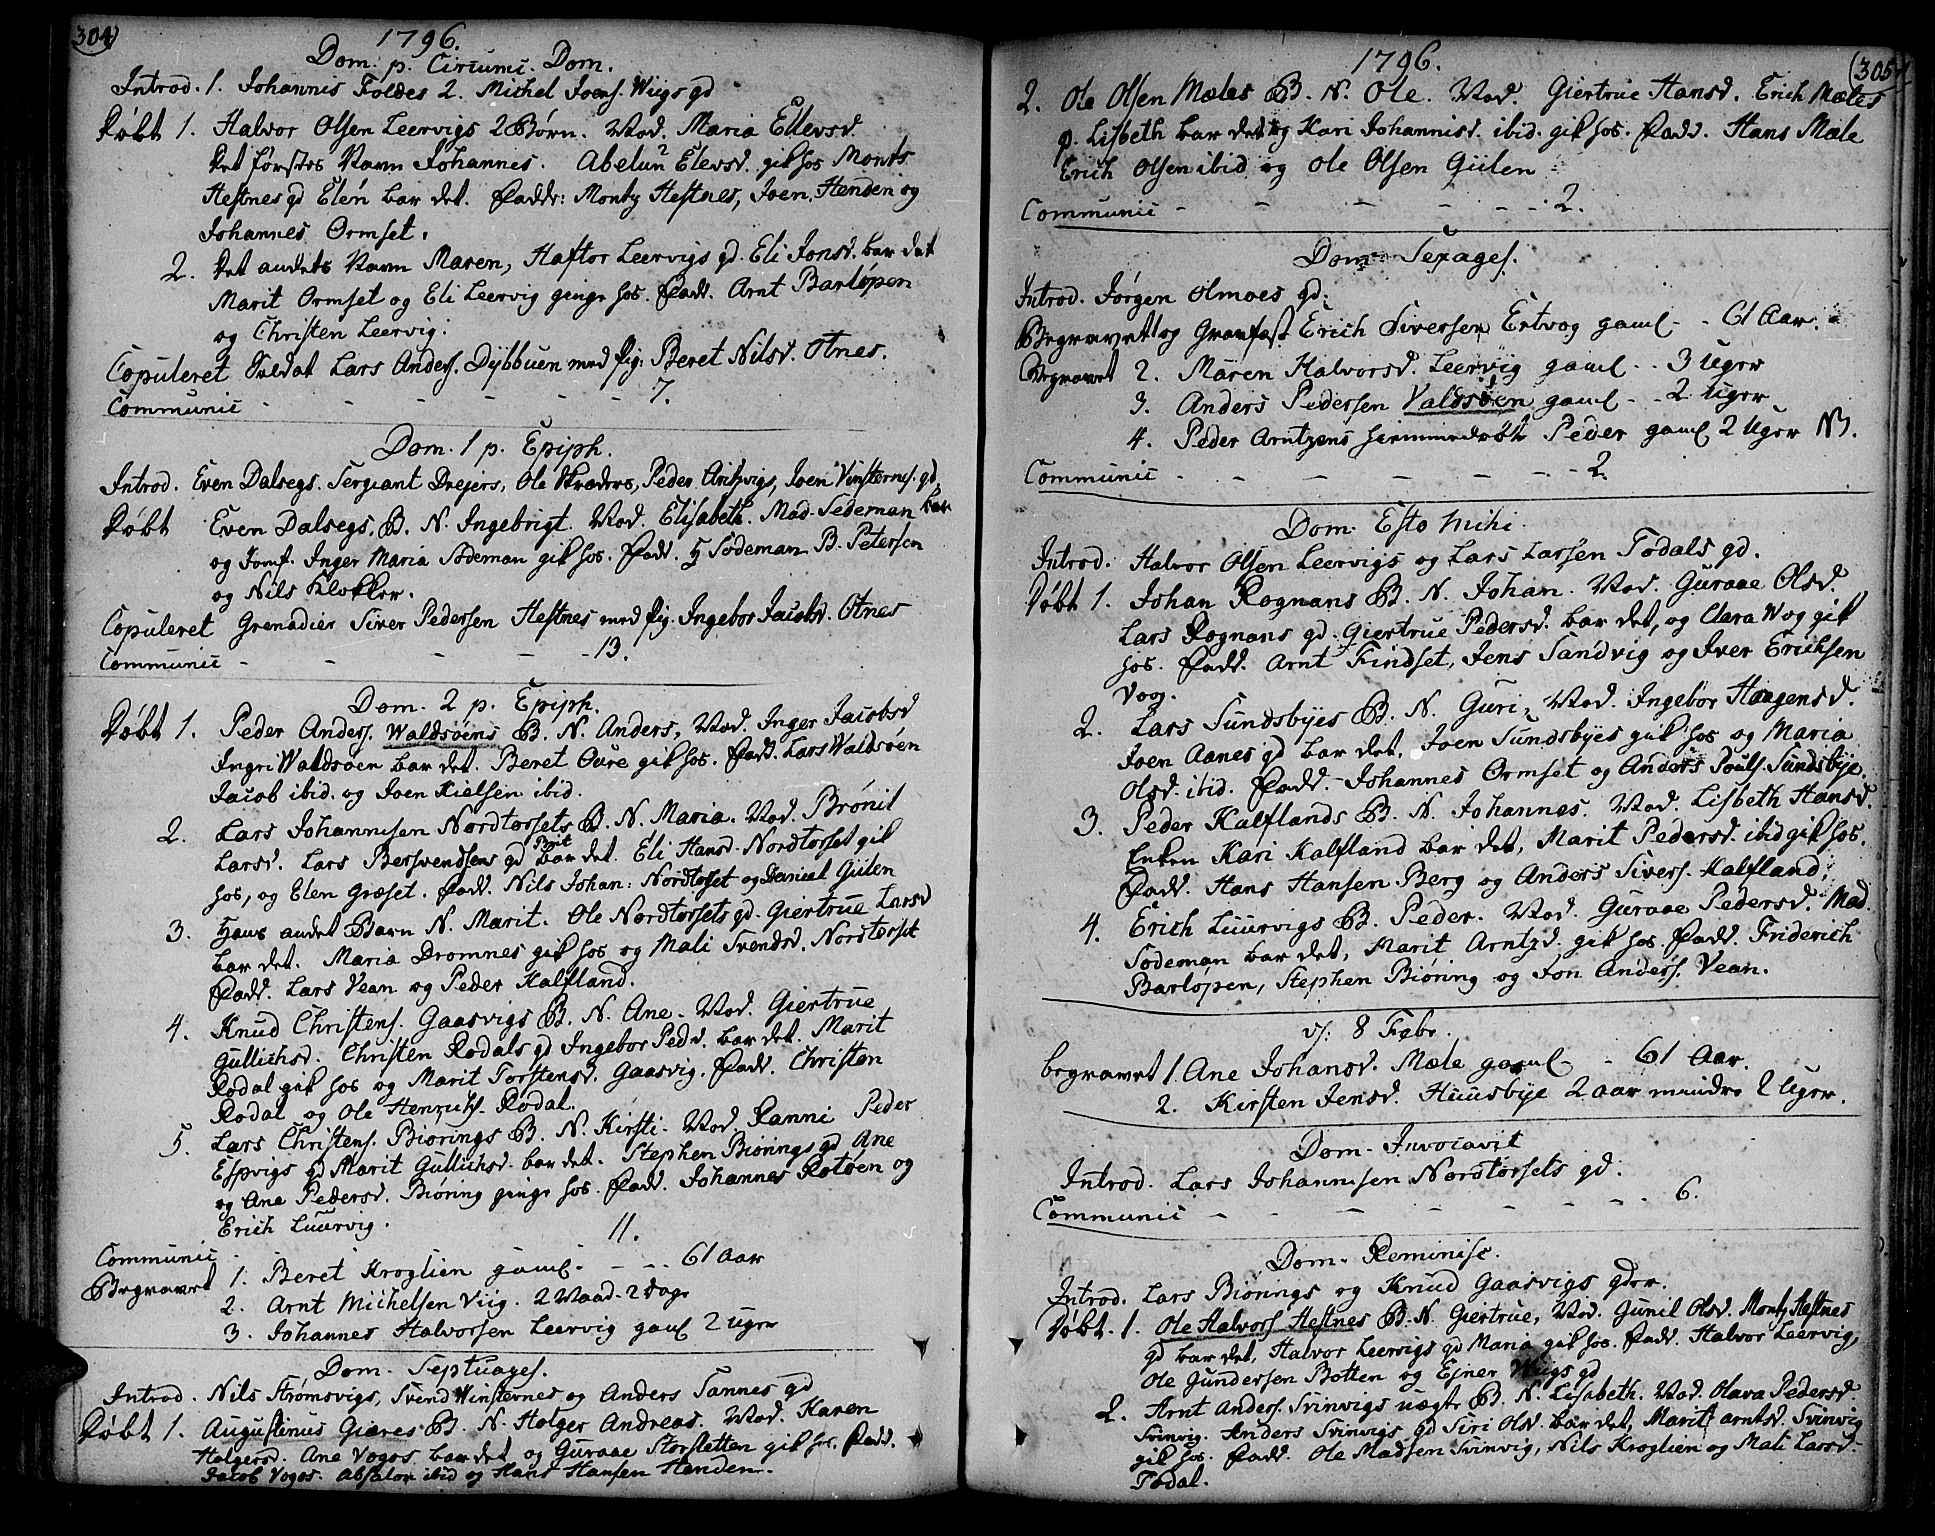 304
1796.
Dom. p. Circumc. Dom.
Introd. 1. Johannis Foldes 2. Michel Joens. Wiigs gd
Døbt 1. Halvor Olsen Leervigs 2 Børn. Mod. Maria Ellevsd.
det førstes Navn Johannes. Abelun Elevsd. gik hos Monts
Hestnes gd Elen bar det. Fadd: Montz Hestnes, Joen Henden og
Johannes Ormset.
2. det andets Navn Maren, Haftor Leervigs gd. Eli Jonsd. bar det
Marit Ormset og Eli Leervig ginge hos. Fadd. Arnt Barløpen
og Christen Leervig.
Copuleret Soldat Lars Anders. Dybbuen med Pig: Beret Nilsd. Otnes.
Communic - - - - - - 7.
Dom. 1 p. Epiph.
Introd. Even Dalsegs. Sergiant Drejers, Ole Skræders, Peder Aritzvigs, Joen Vinsternes. gd.
Døbt Even Dalsegs. B. N. Ingebrigt. Mod. Elisabeth. Mad. Sodeman bar
og Jomf. Inger Maria Sodeman gik hos. Fadd. H Sodeman B. Petersen
og Nils Klokker.
Copuleret Grenadier Siver Pedersen Hestnes med Pig. Ingebor Jacobsd. Otnes
Communic - - - - - 13.
Dom. 2 p. Epiph.
Døbt 1. Peder Anders. Waldsøens B. N. Anders, Mod. Inger Jacobsd
Ingri Waldsøen bar det. Beret Oure gik hos. Fadd. Lars Waldsøen
Jacob ibid. og Joen Nielsen ibid.
2. Lars Johannesen Nordtorsets B. N. Maria. Mod. Brønil
Larsd. Lars Bersvendsens gd Brit bar det. Eli Hansd. Nordtorset gik
hos, og Elen Græset. Fadd. Nils Johan: Nordtorset og Daniel Gülen
3. Hans andet Barn N. Marit. Ole Nordtorsets gd. Giertrue Larsd
bar det. Maria Dromnes gik hos og Mali Svendsd. Nordtorset
Fadd. Lars Vean og Peder Kalfland.
4. Knud Christens. Gaasvigs B. N. Ane. Mod. Giertrue
Gullichsd. Christen Rodals gd Ingebor Pedsd. bar det. Marit
Rodal gik hos og Marit Torstensd. Gaasvig. Fadd. Christen
Rodal og Ole Henrichs. Rodal.
5. Lars Christens. Biørings B. N. Kirsti. Mod. Ranni Peder
Espvigs gd Marit Gullichsd. bar det. Stephen Biørings gd Ane
og Ane Pedersd. Biøring ginge hos. Fadd. Johannes Rotøen og
Erich Luurvig.
Communic 11.
Begravet 1. Beret Kroglien gaml - - - 61 Aar
2. Arnt Michelsen Viig. 2 Maad. 2 Dage
3. Johannes Halvorsen Leervig gaml 2 uger
Dom. Septuages.
Introd. Nils Strømsvigs, Svend Winsternes og Anders Sannes gd
Døbt 1. Augustinus Giæres B. N. Holger Andreas. Mod. Karen
Holgersd. Ane Vogos bar det og Guraae Storsletten gik hos. Fadd.
Jacob Vogos. Absalon ibid og Hans Hansen Henden.
1796.
305
2. Ole Olsen Mæles B. N. Ole. Mod. Giertrue Hansd. Erich Mæles
p. Lisbeth bar det og Kari Johannisd. ibid. gik hos. Fadd. Hans Mæle
Erich Olsen ibid og Ole Olsen Gülen
Communic - - - - - 2.
Dom. Sexages.
Introd. Jørgen Olmoes gd.
Begravet og Granfast Erich Siversen Ertvog gaml - - 61 Aar.
Begravet 2. Maren Halvorsd. Leervig gaml - - 3 Uger
3. Anders Pedersen Valdsøen gaml - - 2 Uger
4. Peder Arntzens hiemmedøbt Peder gaml 2 Uger NB.
Communic - - - - - - 2.
Dom. Esto Mihi.
Introd. Halvor Olsen Leervigs og Lars Larsen Todals gd.
Døbt 1. Johan Rognans B. N. Johan. Mod. Guraae Olsd.
Lars Rognans gd. Giertrue Pedersd. bar det, og Clara Wog gik
hos. Fadd. Arnt Findset, Jens Sandvig og Iver Erichsen
Vog.
2. Lars Sundsbyes B. N. Guri, Mod. Ingebor Haagensd.
Joen Aanes gd bar det. Joen Sundsbyes gik hos og Maria
Olsd. ibid. Fadd. Johannes Ormset og Anders Pouls. Sundsbye.
3. Peder Kalflands B. N. Johannes. Mod. Lisbeth Hansd.
Enken Kari Kalfland bar det, Marit Pedersd. ibid gik hos.
Fadd. Hans Hansen Berg og Anders Sivers. Kalfland.
4. Erich Luurvigs B. Peder. Mod. Guraae Pedersd. Mad.
Sodeman bar det, Marit Arntzd. gik hos. Fadd. Friderich
Barløpen, Stephen Biøring og Jon Anders. Vean.
d: 8 Febr.
begravet 1. Ane Johansd. Mæle gaml - - 61 Aar.
2. Kirsten Jensd. Huusbye 2 aar mindre 2 Uger.
Dom. Invocavit
Introd. Lars Johannisen Nordtorsets gd.
Communic - - - - - - 6.
Dom. Reminisc.
Introd. Lars Biørings og Knud Gaasvigs gder.
Døbt. 1. Ole Halvors. Hestnes B. N. Giertrue, Mod. Gunil Olsd. Montz Hestnes
gd bar det, Halvor Leervigs gd Maria gik hos. Fadd. Halvor Leervig,
Ole Gundersen Botten og Ejner Wiigs gd
2. Arnt Anders. Svinvigs uægte B. N. Lisabeth. Mod. Olava Pedersd.
Svinvig. Anders Svinvigs gd Siri Olsd. bar det, Marit arntsd. Svinvig
gik hos. Fadd. Ole Madsen Svinvig, Nils Kroglien og Mali Larsd.
Todal.